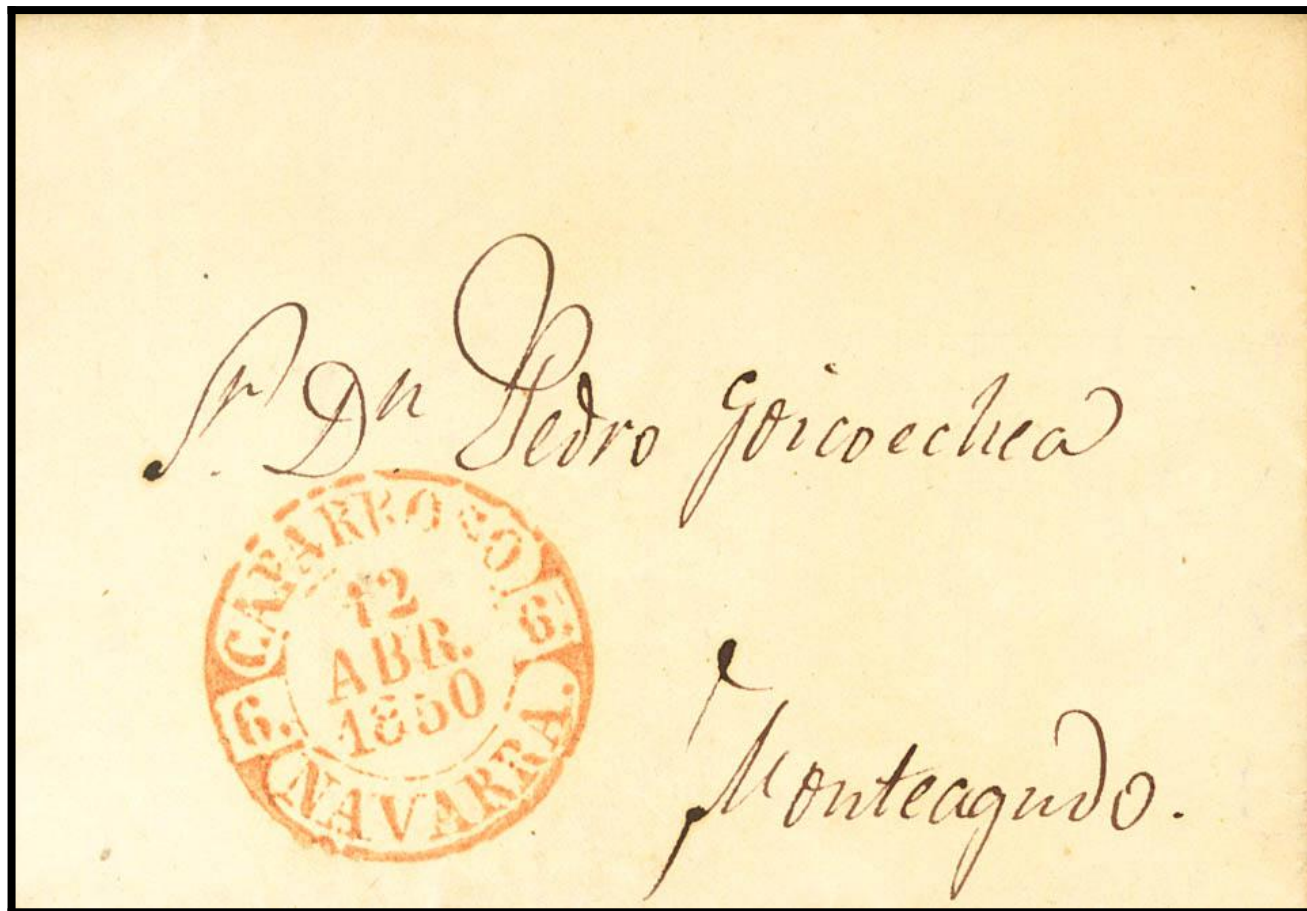 Sr. Dn Pedro Goicoechea
CAPARROSO
6. 6.
12
ABR.
1850
NAVARRA.
Monteagudo.